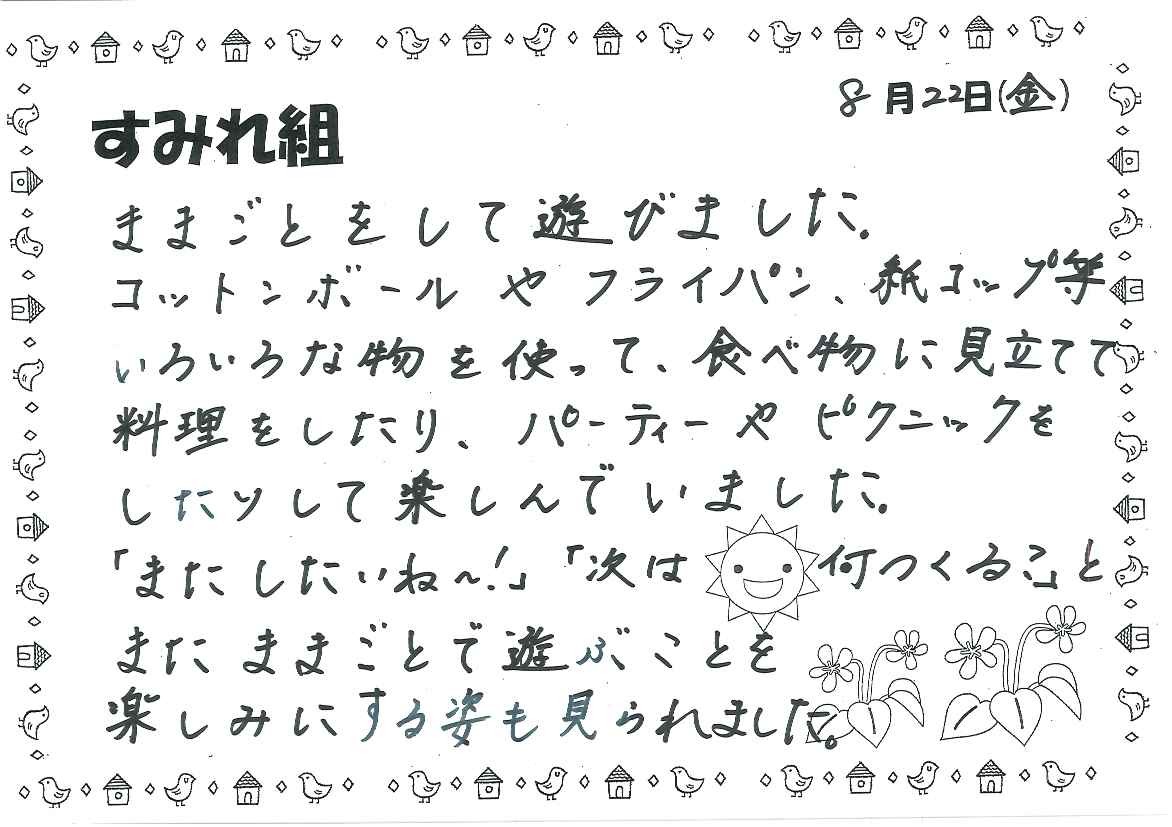 8月22日(金)
すみれ組
ままごとをして遊びました。
コットンボールやフライパン、紙コップ等
いろいろな物を使って、食べ物に見立てて
料理をしたり、パーティーやピクニックを
したりして楽しんでいました。
「またしたいね~!」「次は何つくる?」と
またままごとで遊ぶことを
楽しみにする姿も見られました。